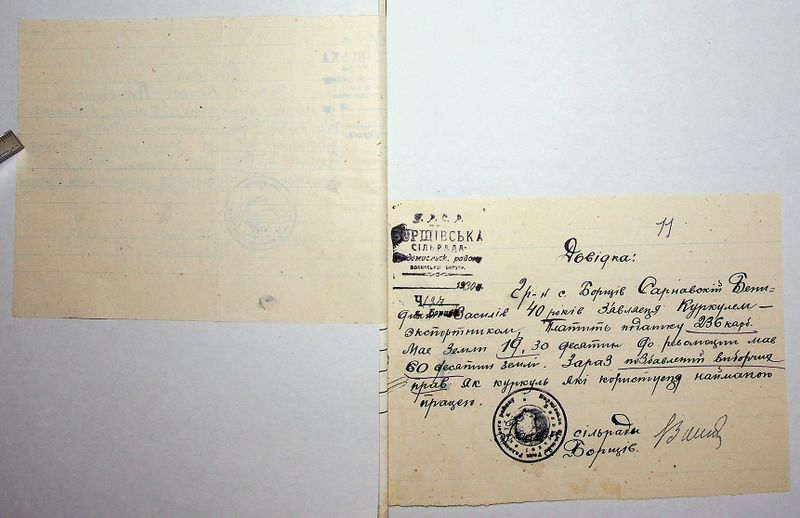 У.Р.С.Р.
БОРЩІВСЬКА
СІЛЬРАДА
Радомисльск. району
ВОЛИНСЬКОЇ ОКРУГИ.
1930 р.
Ч 124
с. Борщів
11
Довідка:
Гр-н с. Борщів Сарнавскій Бени-
Василів 40 років Зʼявляеця Куркулем —
экспортником, Платить податку 236 карб.
Мае Землі 19,30 десятин до революции мав
60 десятин землі. Зараз позбавлений виборчих
прав Як куркуль які користуеця найманою
працею.
сільради
Борщів.